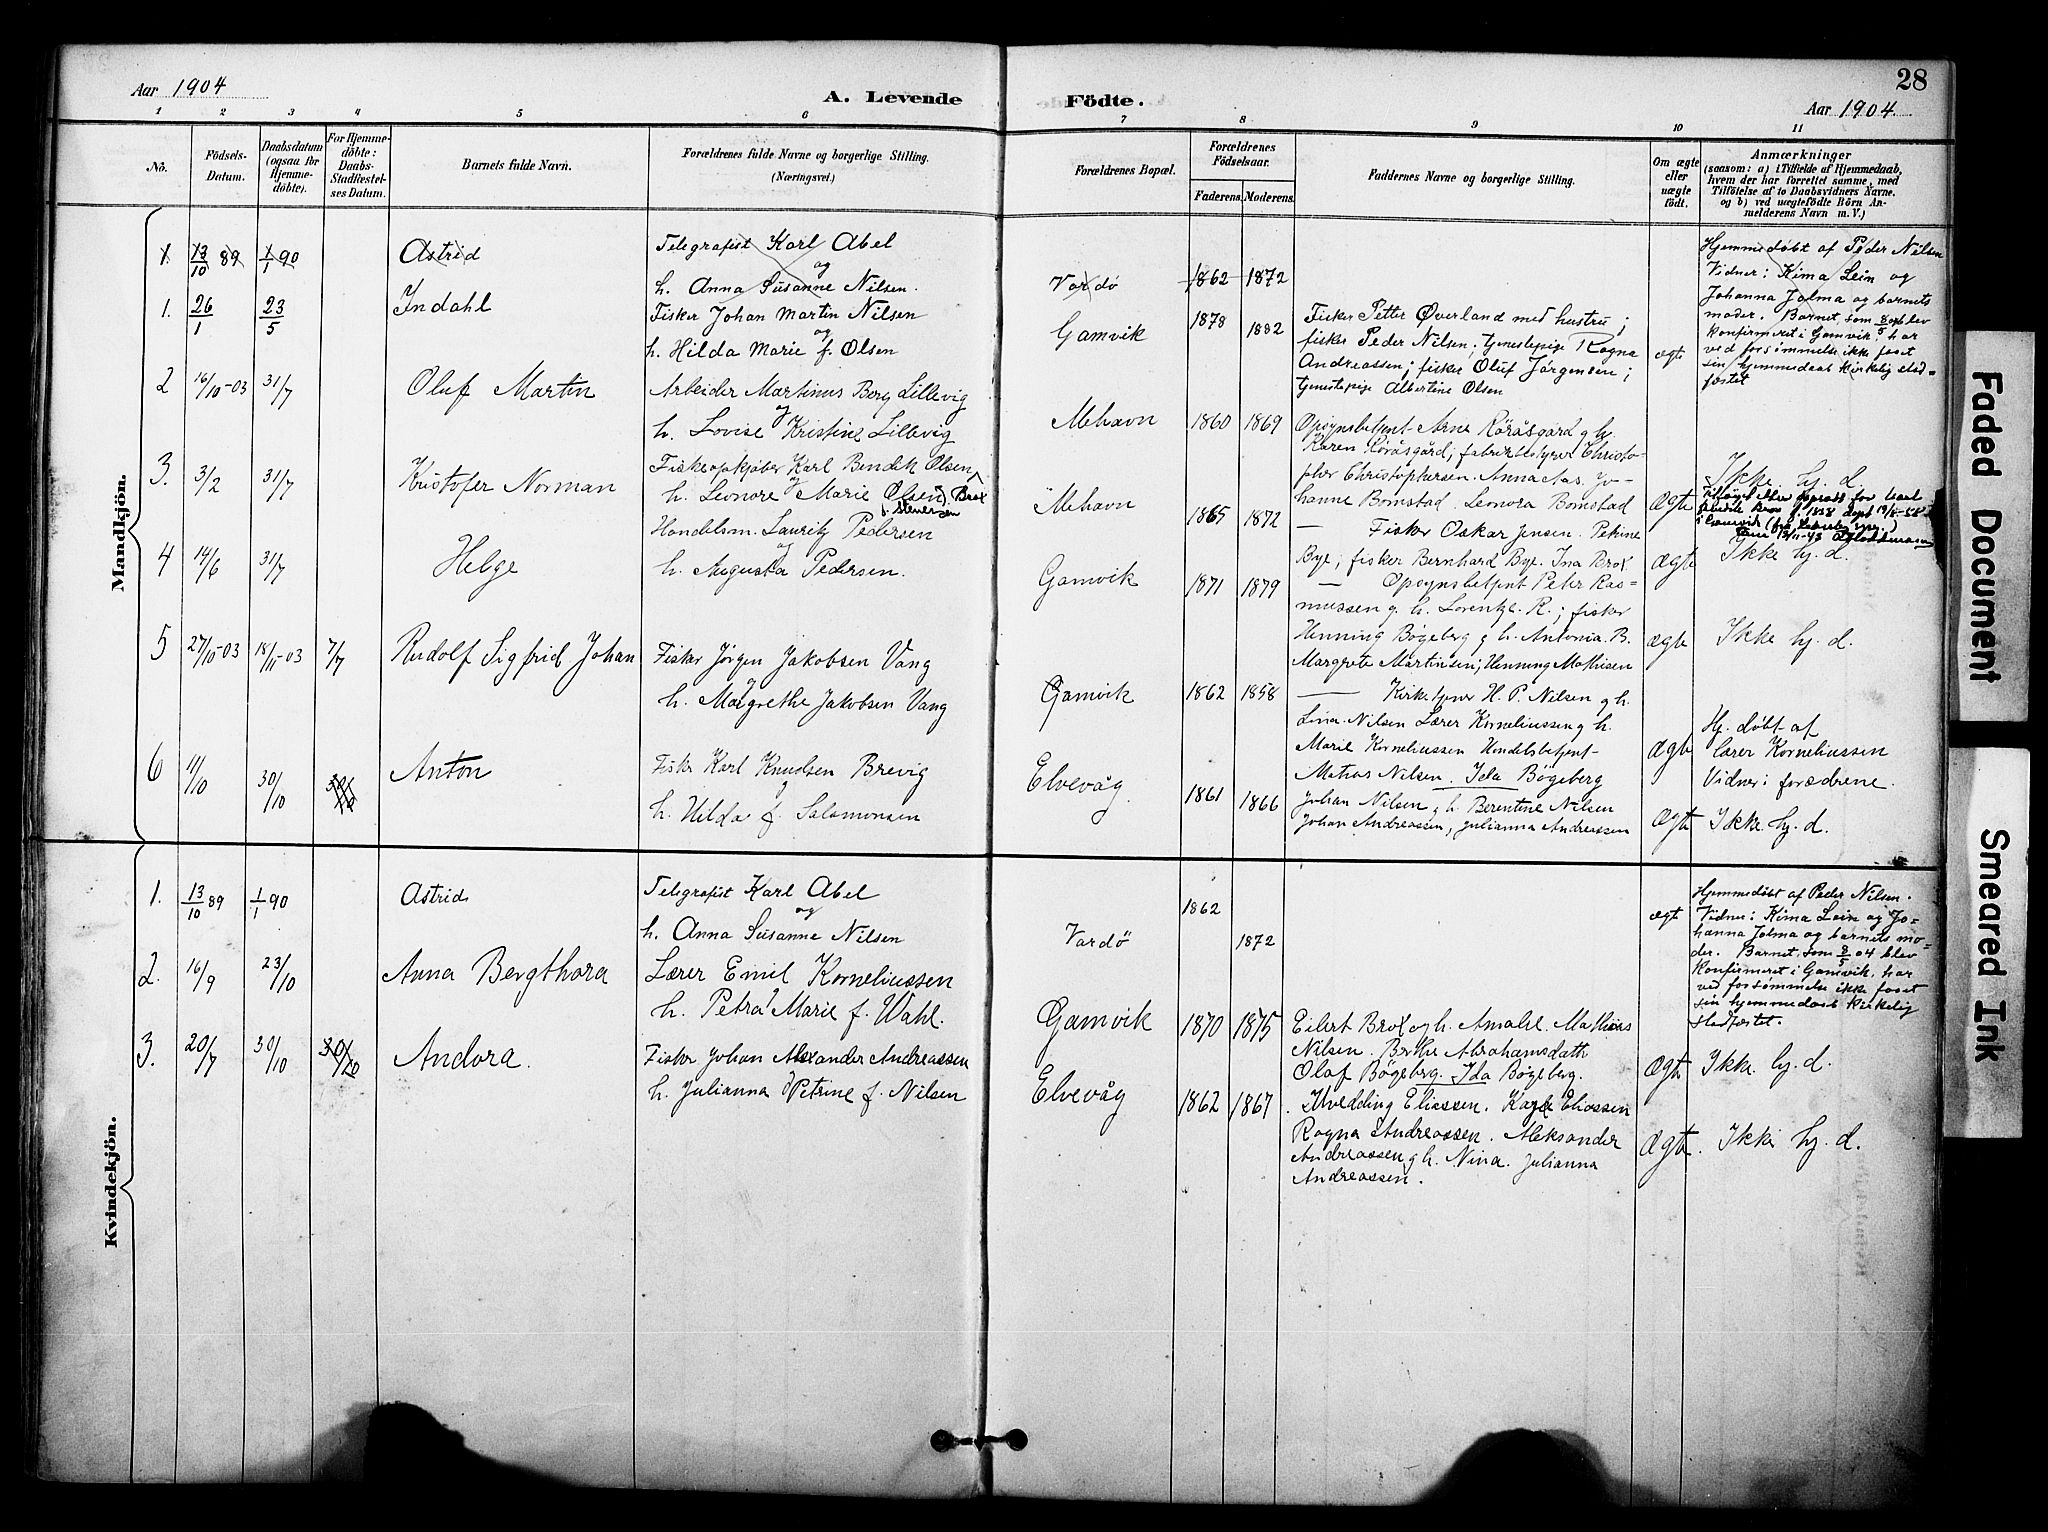 Aar 1904
A. Levende Födte.
28
Aar 1904.
1 2 3 4 5 6 7 8 9 10 11
No.
Födsels-
Datum.
Daabsdatum
(ogsaa for
Hjemme-
döbte).
For Hjemme-
döbte:
Daabs-
Stadfæstel-
ses Datum.
Barnets fulde Navn.
Forældrenes fulde Navne og borgerlige Stilling.
(Næringsvei.)
Forældrenes Bopæl.
Forældrenes
Födselsaar.
Faderens. Moderens.
Faddernes Navne og borgerlige Stilling.
Om ægte
eller
uægte
födt.
Anmærkninger
(saasom: a) i Tilfælde af Hjemmedaab,
hvem der har forrettet samme, med
Tilföielse af to Daabsvidners Navne,
og b) ved uægtefödte Börn An-
melderens Navn m. V.)
Mandkjön.
1. 13/10 89 1/1 90 Astrid
Telegrafist Karl Abel
og
h. Anna Susanne Nilsen.
Vardø 1862 1872
Hjemmedøbt af Peder Nilsen
Vidner: Kima Lein og
Johanna Jolma og barnets
moder. Barnet, som 8/5 04 blev
konfirmeret i Gamvik, har
ved forsømmelse ikke faaet
sin hjemmedaab kirkelig stad-
fæstet
1. 26/1 23/5 Indahl
Fisker Johan Martin Nilsen
og
h. Hilda Marie f. Olsen
Gamvik 1878 1882
Fisker Petter Øverland med hustru;
fisker Peder Nilsen; tjenestepige Ragna
Andreassen; fisker Oluf Jørgensen;
tjenestepige Albertine Olsen
ægt
2 16/10-03 31/7 Oluf Martin
Arbeider Martinus Berg Lillevig
og
h. Lovise Kristine Lillevig
Mehavn 1860 1869
Opsynsbetjent Arne Røråsgård g h.
Karen Røråsgård; fabrikbestyrer Christo-
pher Christophersen. Anna Aas. Jo-
hanne Bomstad. Leonora Bomstad
Ægte Ikke hj. d.
3. 3/2 31/7 Kristofer Norman
Fiskeopkjøber Karl Bendik Olsen Brox
og
h. Leonore Marie Olsen
f. Stenersen
Mehavn 1865 1872
— Fisker Oskar Jensen. Petrine
Bye; fisker Bernhard Bye. Ina Brox
Ægte Ikke hj. d.
4 14/6 31/7 Helge
Handelsm. Lauritz Pedersen
og
h. Augusta Pedersen.
Gamvik 1871 1879
— Opsynsbetjent Peter Ras-
mussen g. h. Lorentze. R.; fisker
Henning Bøgeberg g h. Antonia. B.
Margrete Martinsen; Henning Mathisen
ægte Ikke hj. d.
5 27/10-03 18/11-03 7/7 Rudolf Sigfrid Johan
Fisker Jørgen Jakobsen Vang
h. Margrethe Jakobsen Vang
Gamvik 1862 1858
— Kirketjener H. P. Nilsen g h.
Lina Nilsen Lærer Korneliussen g h.
Marie Korneliussen Handelsbetjent
Matias Nilsen. Ida Bøgeberg
Ægte
Hj. døbt af
lærer Korneliussen
Vidner: forældrene.
6 11/10 30/10 Anton
Fisker Karl Knudsen Brevig
h. Hilda f. Salamonsen
Elvevåg. 1861 1866
Johan Nilsen g h. Berentine Nilsen
Johan Andreassen, Julianna Andreassen
Ægte Ikke hj. d.
Kvindekjön.
1. 13/10 89 1/1 90 Astrid
Telegrafist Karl Abel
og
h. Anna Susanne Nilsen
Vardø 1862 1872
ægt
Hjemmedøbt af Peder Nilsen.
Vidner: Kima Lein og Jo-
hanna Jolma og barnets mo-
der. Barnet, som 8/5 04 blev
konfirmeret i Gamvik, har
ved forsømmelse ikke faaet
sin hjemmedaab kirkelig
stadfæstet.
2. 16/9 23/10 Anna Bergthora
Lærer Emil Korneliussen
h. Petra Marie f. Wahl.
Gamvik 1870 1875
Eilert Brox og h. Amalie. Mathias
Nilsen. Berthe Abrahamsdath
Olaf Bøgeberg. Ida Bøgeberg.
Ægte Ikke hj. d.
3. 20/7 30/10 30/10 Andora.
Fisker Johan Alexander Andreassen
h. Julianna Petrine f. Nilsen
Elvevåg 1862 1867
. Hvedding Eliassen. Karle Eliassen
Ragna Andreassen. Aleksander
Andreassen g h. Nina. Julianna
Andreassen.
Ægte. Ikke hj. d.
Faded Document
Smeared Ink